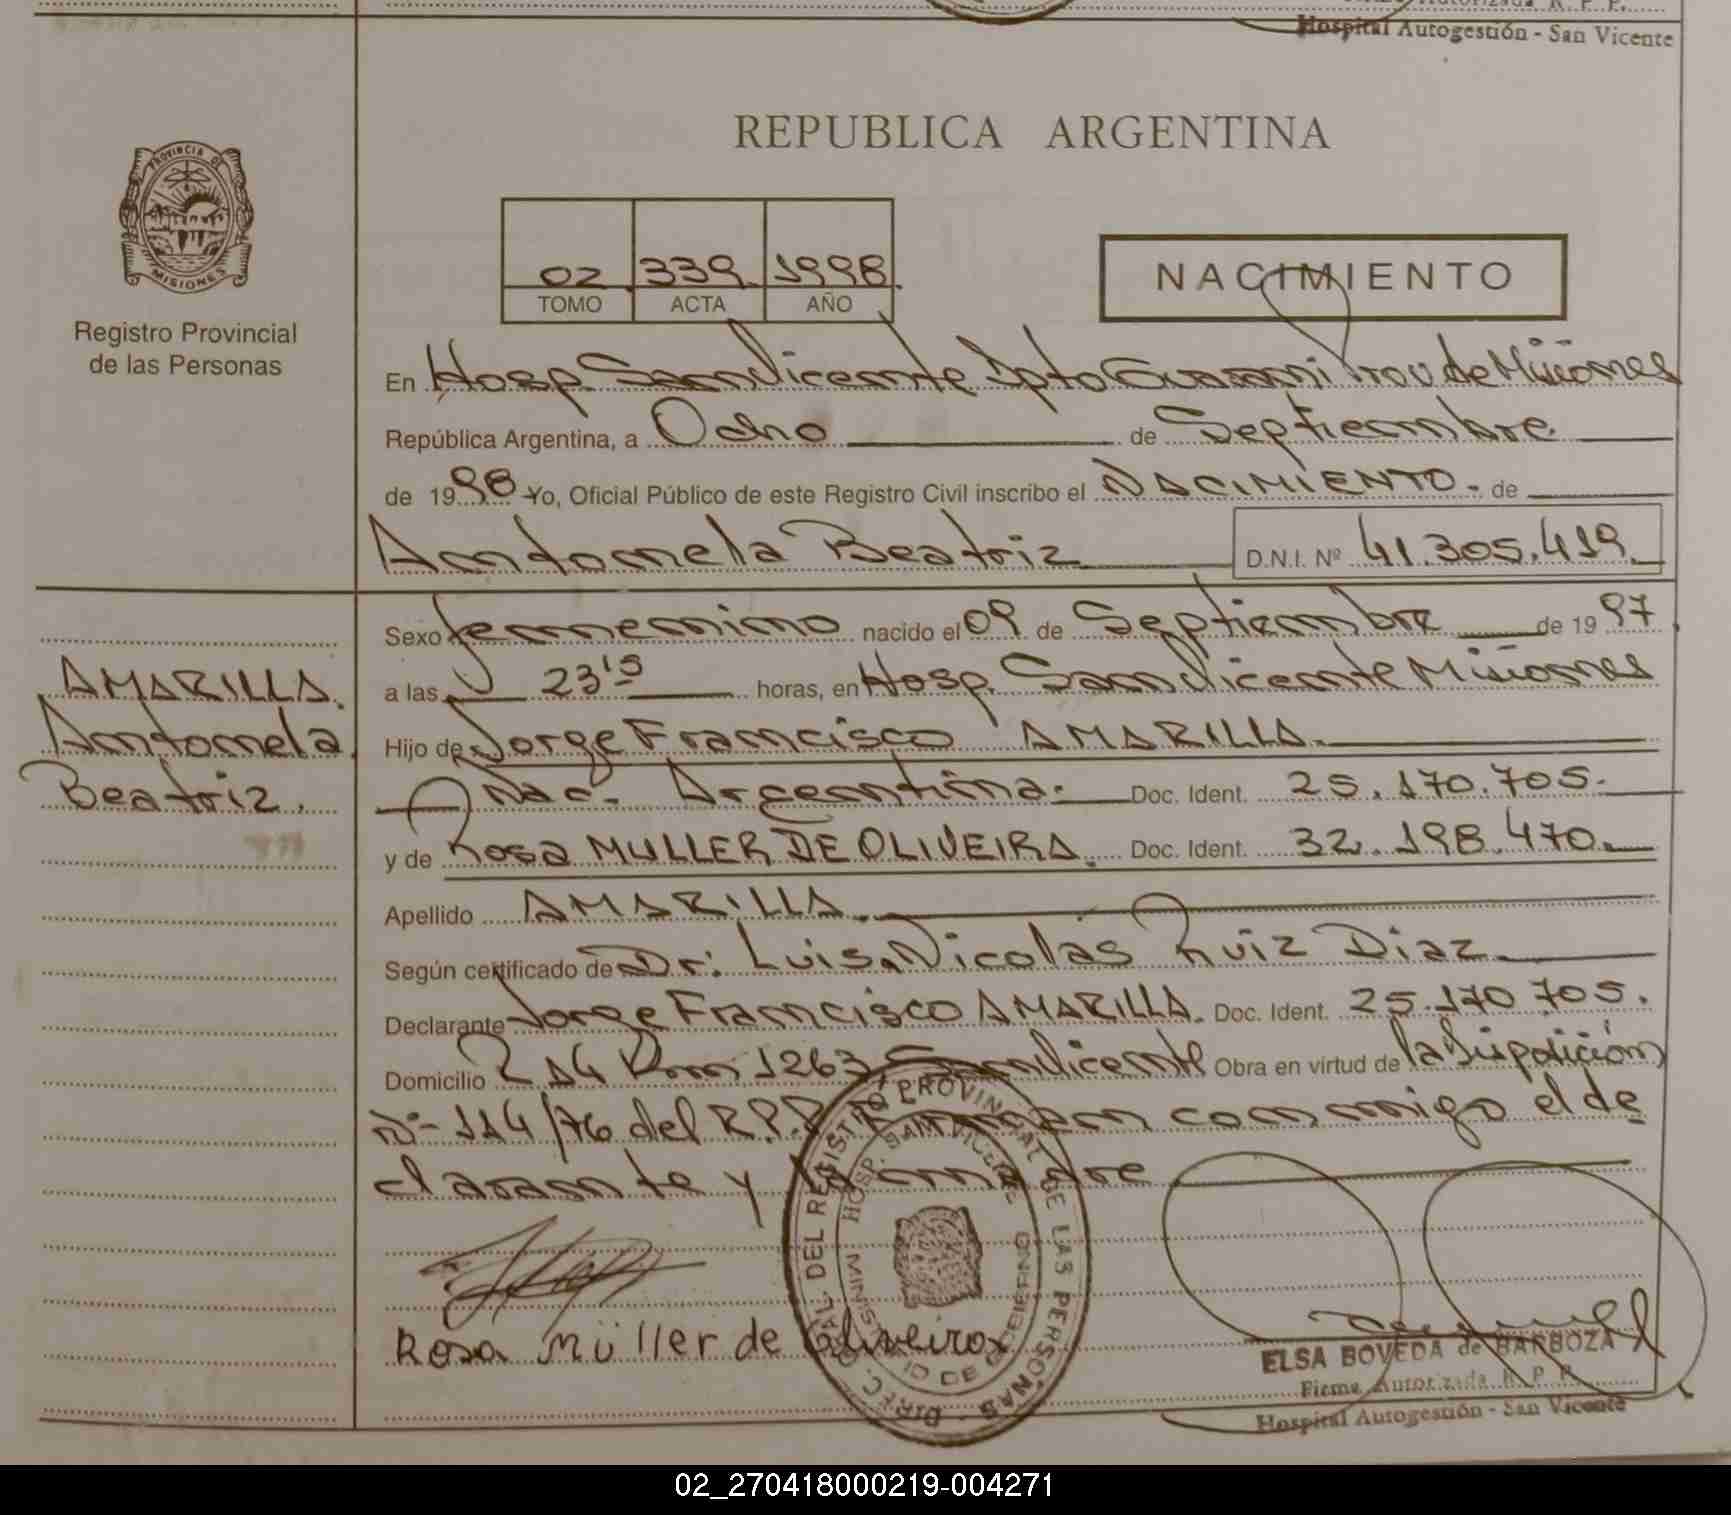 Hospital Autogestión - San Vicente
REPUBLICA ARGENTINA
PROVINCIA DE
MISIONES
Registro Provincial
de las Personas
02 339 1998
TOMO ACTA AÑO
NACIMIENTO
En Hosp. San Vicente Dpto Guarani Prov de Misiones
República Argentina, a Ocho de Septiembre
de 1998 Yo, Oficial Público de este Registro Civil inscribo el NACIMIENTO - de
Antonela Beatriz D.N.I. Nº 41.305.419.
Sexo femenino nacido el 09 de Septiembre de 1997
a las 23 15 horas, en Hosp. San Vicente Misiones
Hijo de Jorge Francisco AMARILLA.
Nac. Argentina. Doc. Ident. 25.170.705.
y de Rosa MULLER DE OLIVEIRA. Doc. Ident. 32.198.470.
Apellido AMARILLA.
Según certificado de Dr. Luis Nicolás Ruiz Diaz
Declarante Jorge Francisco AMARILLA. Doc. Ident. 25.170.705.
Domicilio R 14 Km 1263, San Vicente Obra en virtud de la Disposición
Nº 114/76 del R.P.P. Firman conmigo el de
clarante y la madre
AMARILLA.
Antonela
Beatriz.
Rosa Müller de Oliveira
DIREC. GRAL. DEL REGISTRO PROVINCIAL DE LAS PERSONAS
HOSP. SAN VICENTE
MINISTERIO DE GOBIERNO
ELSA BOVEDA de BARBOZA
Firma Autorizada R. P. P.
Hospital Autogestión - San Vicente
02_270418000219-004271